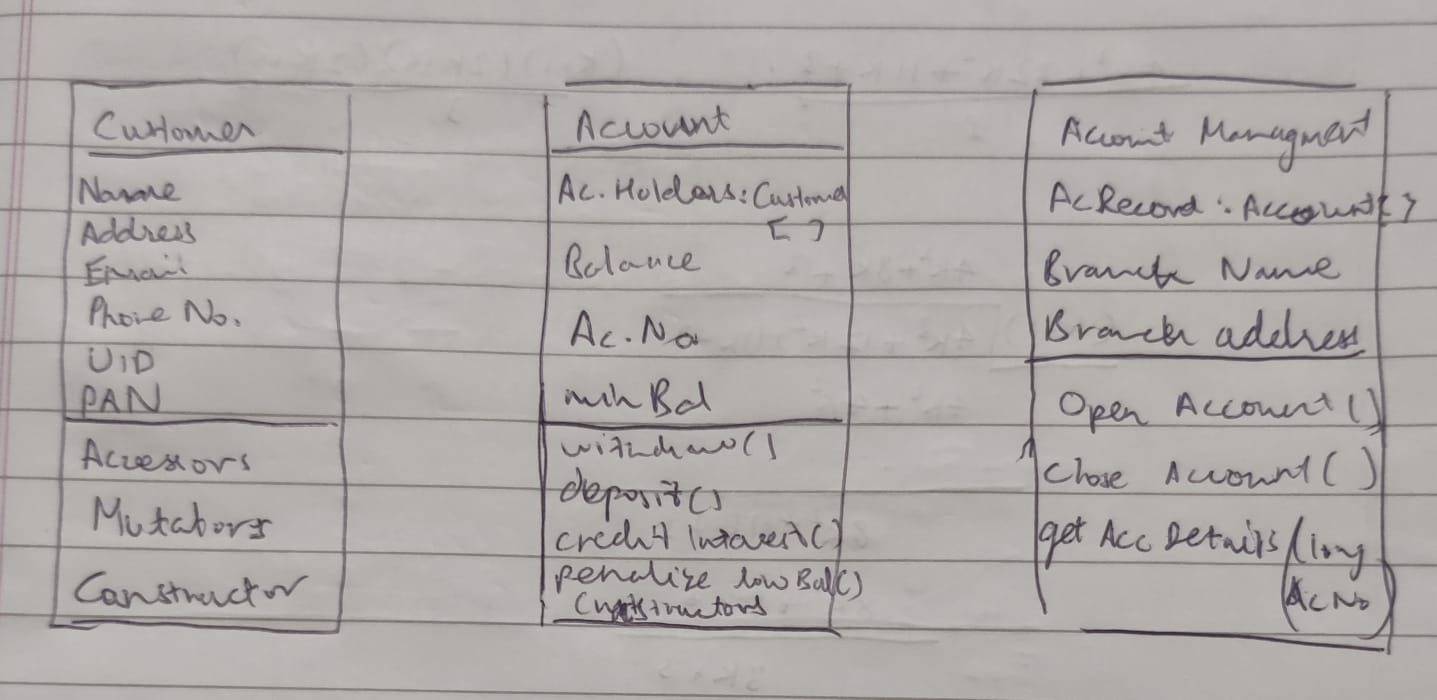 Customer
Name
Address
Email
Phone No.
UID
PAN
Accessors
Mutators
Constructor
Account
Ac. Holders: Customer
[ ]
Balance
Ac. No
minBal
withdraw()
deposit()
credit Interest()
penalize lowBal()
Constructors
Account Managment
AcRecord : Account[ ]
Branch Name
Branch address
Open Account()
Close Account()
get Acc Details (long
AcNo)